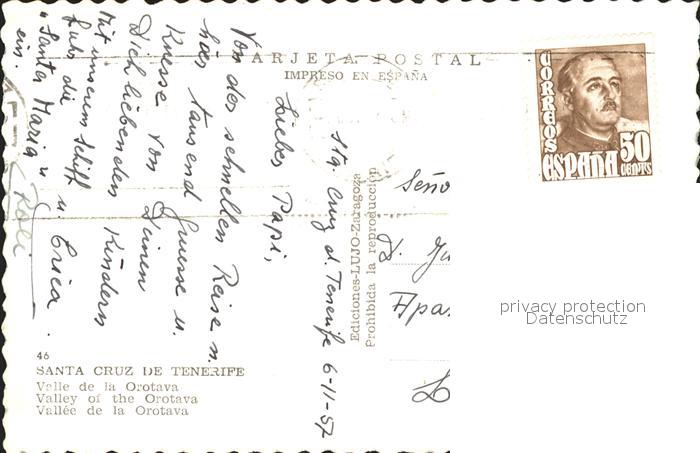 TARJETA POSTAL
IMPRESO EN ESPAÑA
CORREOS
ESPAÑA 50
CENTS
Sta. Cruz d. Tenerife 6-11-57
Lieber Papi,
Von der schnellen Reise n.
hier tausend Gruesse u.
Kuesse von Deinen
Dich liebenden Kindern
u. Erica.
Roli
Mit unserem Schiff
fuhr die
"Santa Maria"
ein.
Ediciones-LUJO-Zaragoza
Prohibida la reproducción
Seño
D. Ju
Apa
L
privacy protection
Datenschutz
46
SANTA CRUZ DE TENERIFE
Valle de la Orotava
Valley of the Orotava
Vallée de la Orotava